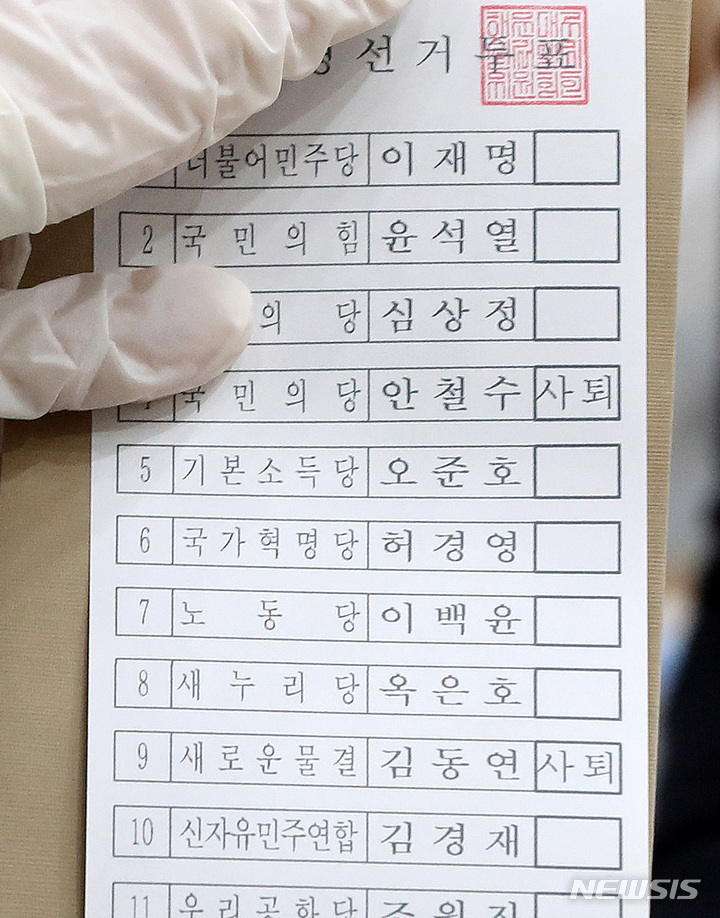 선거투표
더불어민주당 이재명
2 국민의힘 윤석열
의당 심상정
국민의당 안철수 사퇴
5 기본소득당 오준호
6 국가혁명당 허경영
7 노동당 이백윤
8 새누리당 옥은호
9 새로운물결 김동연 사퇴
10 신자유민주연합 김경재
11 우리공화당 조원진
NEWSIS